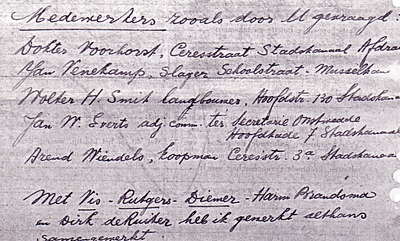 Medewerkers zooals door U gevraagd:
Dokter Voorhorst, Ceresstraat Stadskanaal
Jan Venekamp, Slager Schoolstraat - Musselkan
Wolter H. Smit landbouwer, Hoofdstr. 130 Stadskana
Jan W. Everts adj. comm. ter secretarie Onstwedde
Hoofdkade 7 Stadskanaal
Arend Wiendels, Koopman Ceresstr. 3a Stadskanaa
Met Vis - Rutgers - Diemer - Harm Brandsma
en Dirk de Ruiter heb ik gewerkt althans
samengewerkt